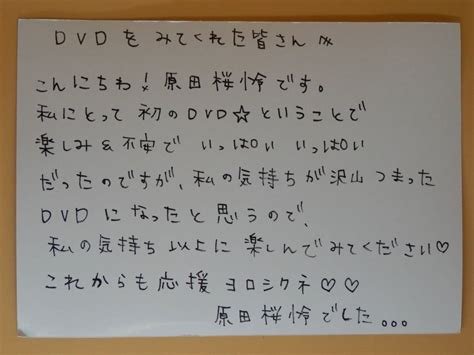 DVDをみてくれた皆さん
こんにちわ!原田桜怜です。
私にとって初のDVD☆ということで
楽しみ&不安でいっぱいいっぱい
だったのですが、私の気持ちが沢山つまった
DVDになったと思うので、
私の気持ち以上に楽しんでみてください♡
これからも応援ヨロシクネ♡♡
原田桜怜でした。。。